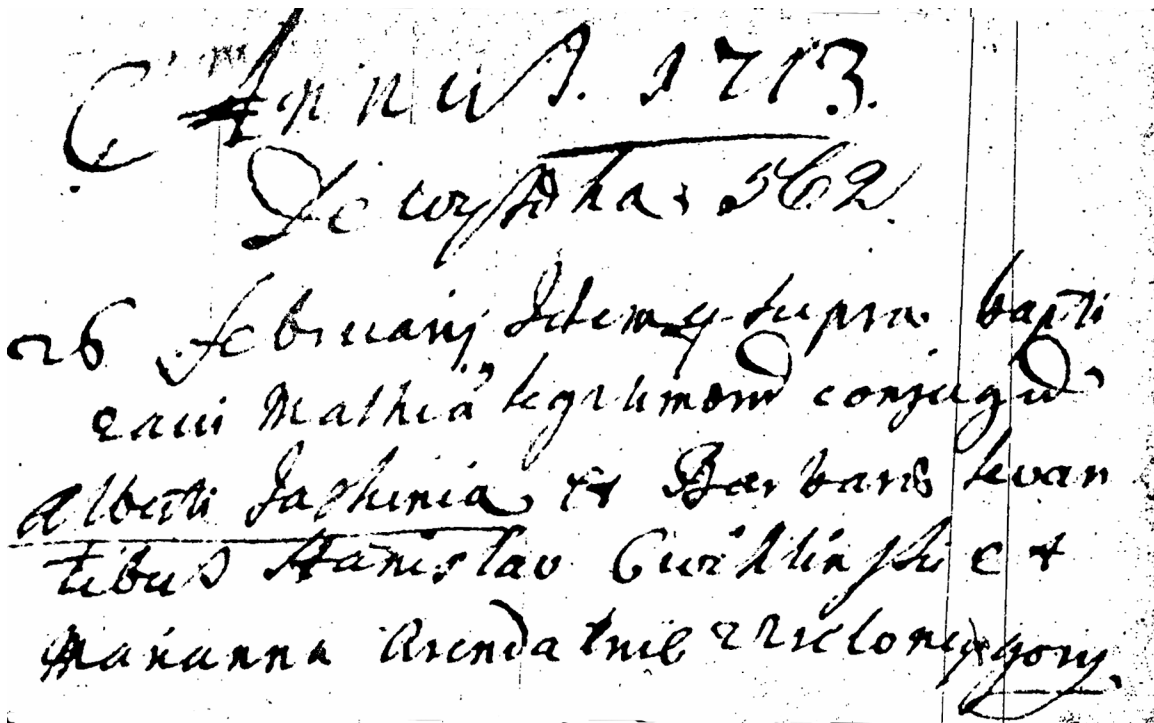 Annus. 1713.
562
26 February Idem q supra bapti
zavi Mathiā legitimorū conjugū
Alberti Jaskinia et Barbara levan
tibus Stanislao Cwiklinski et
Marianna Arenda zieloney gory.